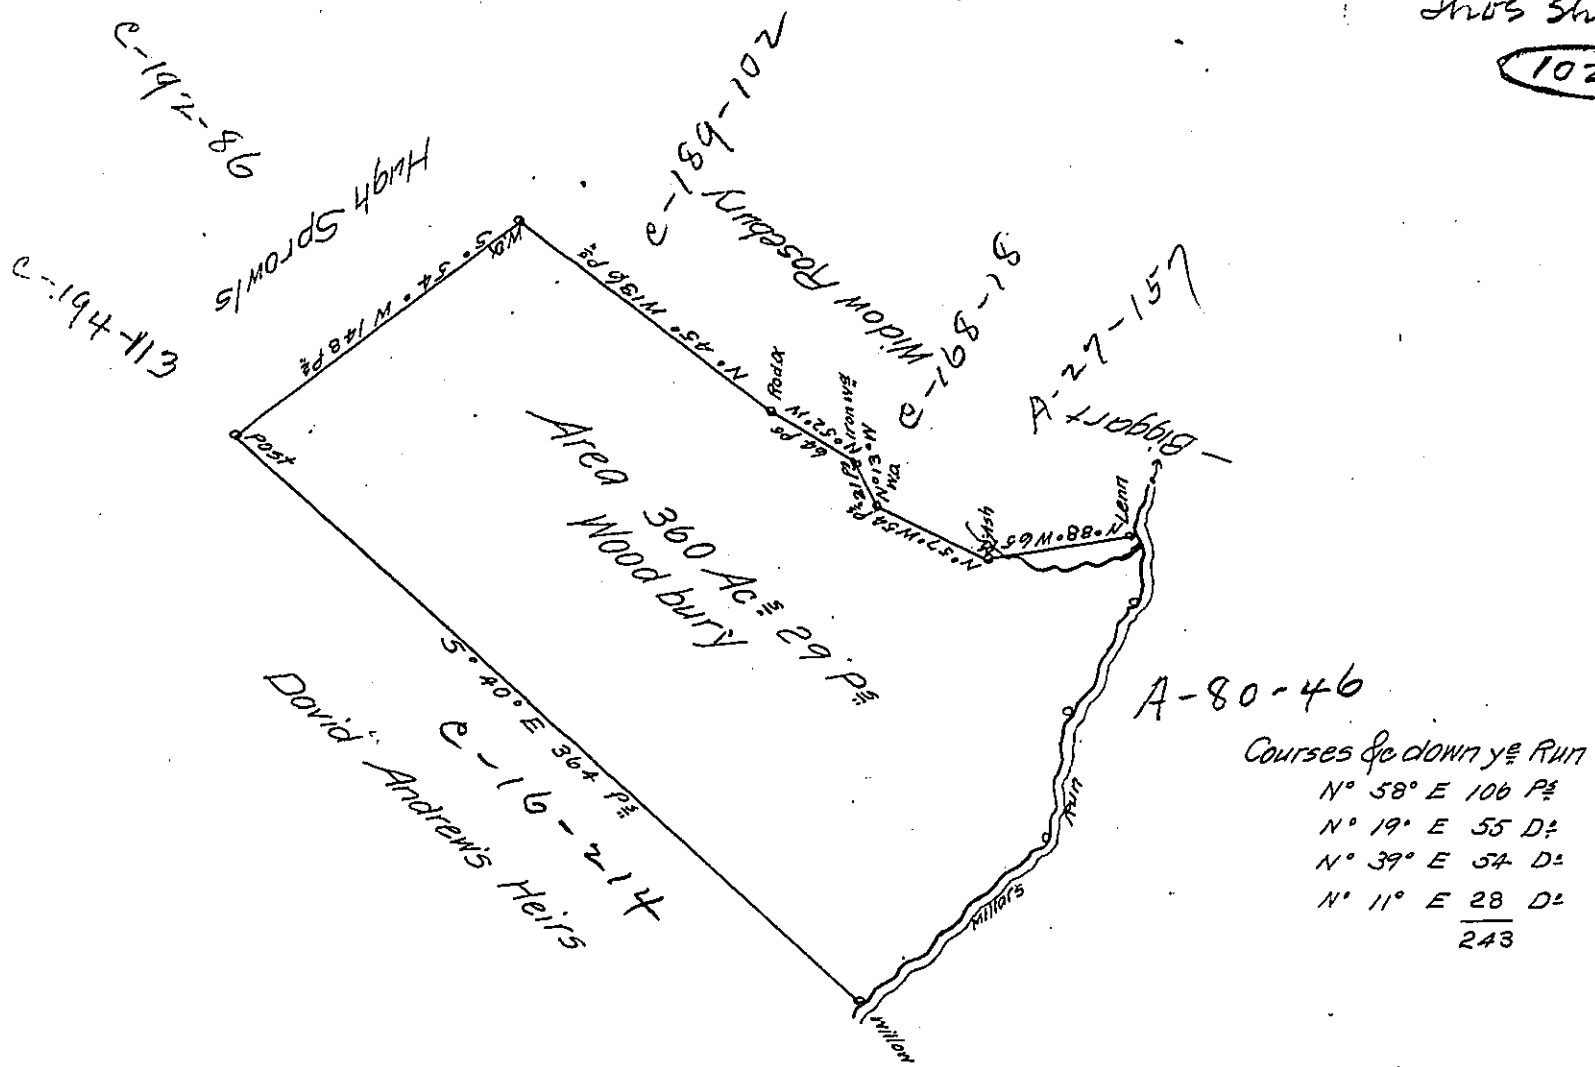 Thos
102
C-192-86
Hugh Sprowls
C-194-113
C-189-102
Widow Rosebury
C-168-18
A-27-157
Biggart
W.O.
S° 54° W 148 Ps
Post
N° 45° W 136 Ps
Red O
N° 52° W
64 Ps
N° 31° W
21 Ps
W.O.
N° 57° W 54 Ps
Ash
N° 88° W 65
Lenn
Area 360 Acs 29 Ps
Woodbury
S° 40° E 364 Ps
C-16-214
David Andrew's Heirs
Millars
Run
Willow
A-80-46
Courses &c down ye Run
N° 58° E 106 Ps
N° 19° E 55 Do
N° 39° E 54 Do
N° 11° E 28 Do
243